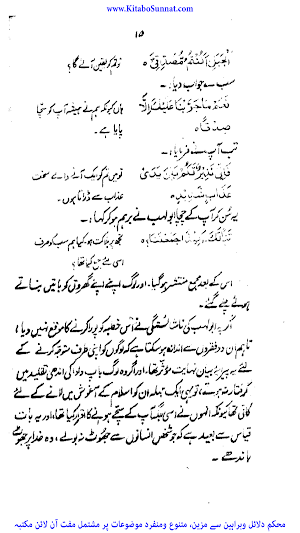 www.KitaboSunnat.com
۱۵
تو تم کو یقین آئے گا؟
سب نے جواب دیا:۔
نَعَمْ مَا جَرَّبْنَا عَلَيْكَ اِلَّا
صِدْقًا ہ
ہاں کیونکہ ہم نے ہمیشہ آپ کو سچا
پایا ہے۔
تب آپ نے فرمایا:۔
فَاِنِّی نَذِیْرٌ لَّکُمْ بَیْنَ یَدَیْ
عَذَابٍ شَدِیْدٍ ہ
تو میں تم کو ایک آنے والے سخت
عذاب سے ڈراتا ہوں۔
یہ سن کر آپ کے چچا ابولہب نے برہم ہو کر کہا:۔
تَبًّا لَکَ اَلِهٰذَا جَمَعْتَنَا ہ
تجھ پر ہلاکت ہو، کیا ہم سب کو صرف
اسی لئے جمع کیا تھا؟
اس کے بعد مجمع منتشر ہو گیا۔ اور لوگ اپنے اپنے گھروں کو باتیں بناتے
ہوئے چلے گئے۔
گو یہ ابولہب کی ناشائستگی نے اس خطبہ کو پورا کرنے کا موقع نہیں دیا،
تاہم ان دو فقروں سے اندازہ ہو سکتا ہے کہ لوگوں کو اپنی طرف متوجہ کرنے کے
لئے یہ پیرایہ بیان نہایت مؤثر تھا، اور اگر وہ لوگ باپ دادا کی اندھی تقلید میں
گرفتار نہ ہوتے، تو یہی ایک جملہ ان کو اسلام کے آغوش میں لانے کے لئے
کافی تھا کیونکہ انہوں نے اسی جگہ آپ کے سچے ہونے کا اقرار کیا تھا، اور یہ بات
قیاس سے بعید ہے کہ جو شخص انسانوں سے جھوٹ نہ بولے، وہ خدا پر جھوٹ
باندھے۔
محکم دلائل وبراہین سے مزین، متنوع ومنفرد موضوعات پر مشتمل مفت آن لائن مکتبہ